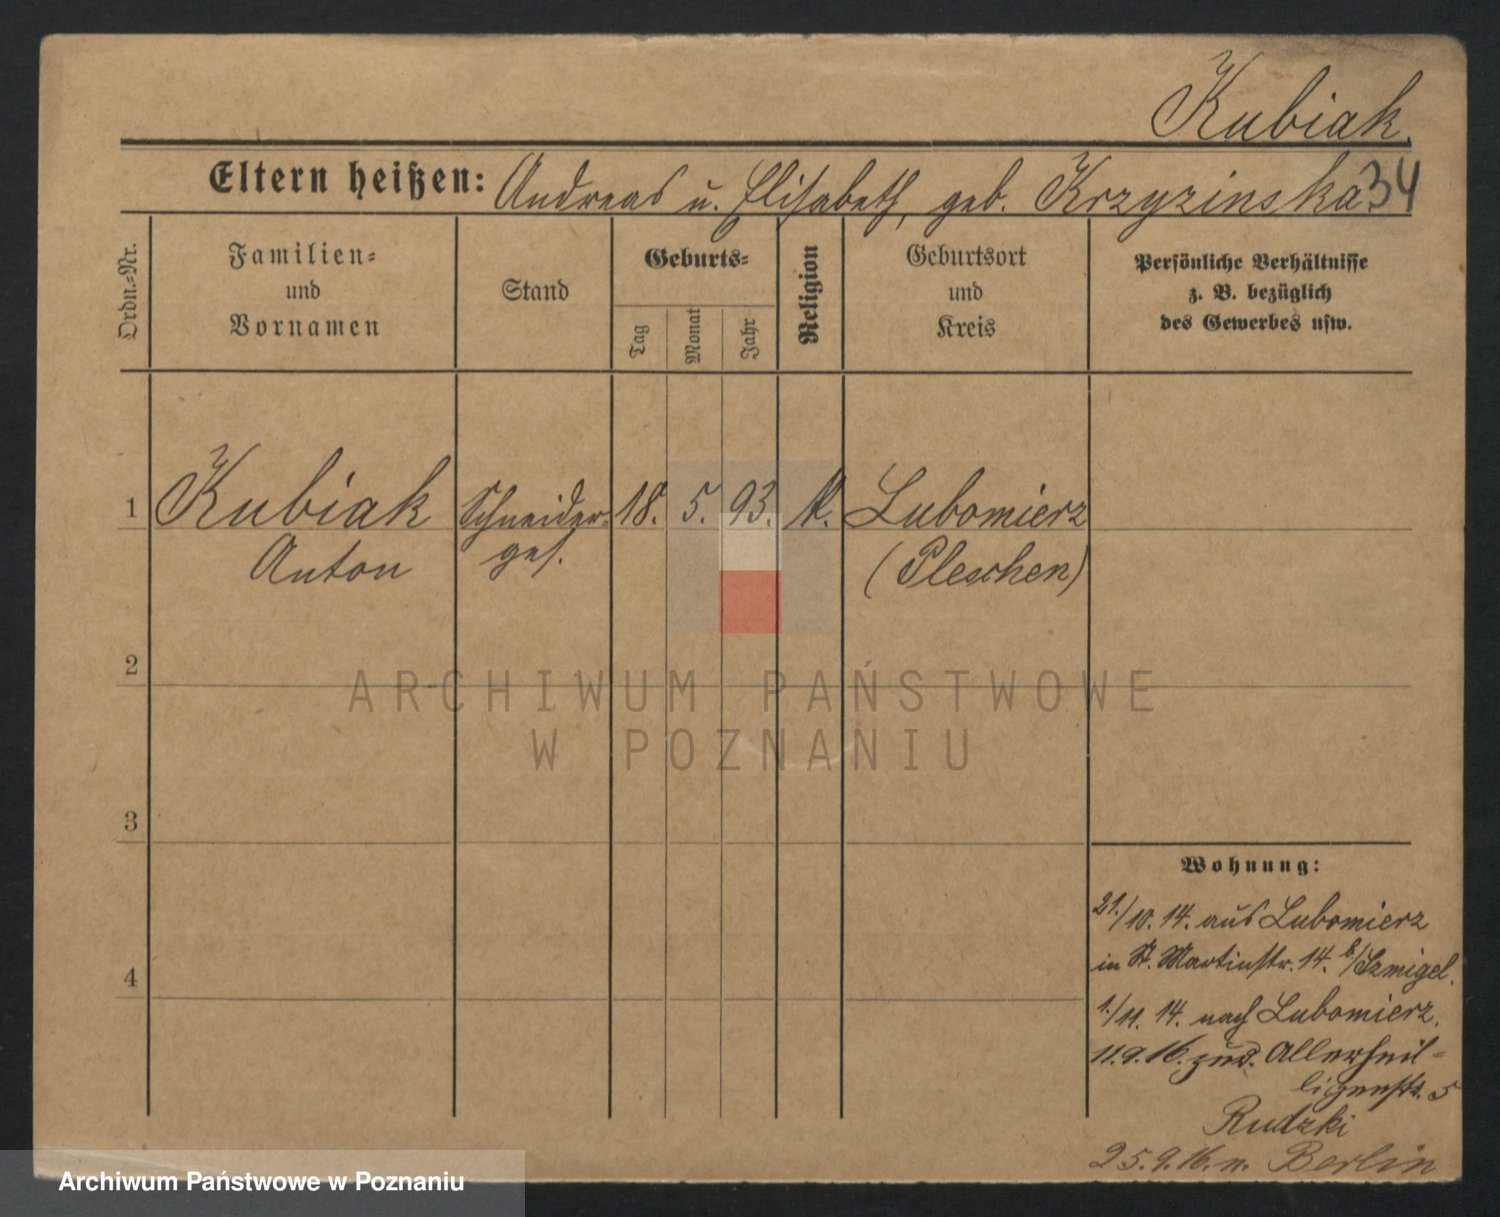 Kubiak.
Eltern heißen: Andreas u. Elisabeth, geb. Krzyzinska. 34
Ordn.=Nr.
Familien=
und
Vornamen
Stand
Geburts=
Tag
Monat
Jahr
Religion
Geburtsort
und
Kreis
Persönliche Verhältnisse
z. B. bezüglich
des Gewerbes usw.
1 Kubiak Schneider= 18. 5. 93. k. Lubomierz
Anton ges. (Pleschen)
2
ARCHIWUM PAŃSTWOWE
W POZNANIU
3
Wohnung:
21./10. 14. aus Lubomierz
in St. Martinstr. 14. b/Szmigel.
4
1./11. 14. nach Lubomierz.
11.9.16. zud. Allerheil=
ligenstr. 5
Rudzki
25.9.16. n. Berlin
Archiwum Państwowe w Poznaniu